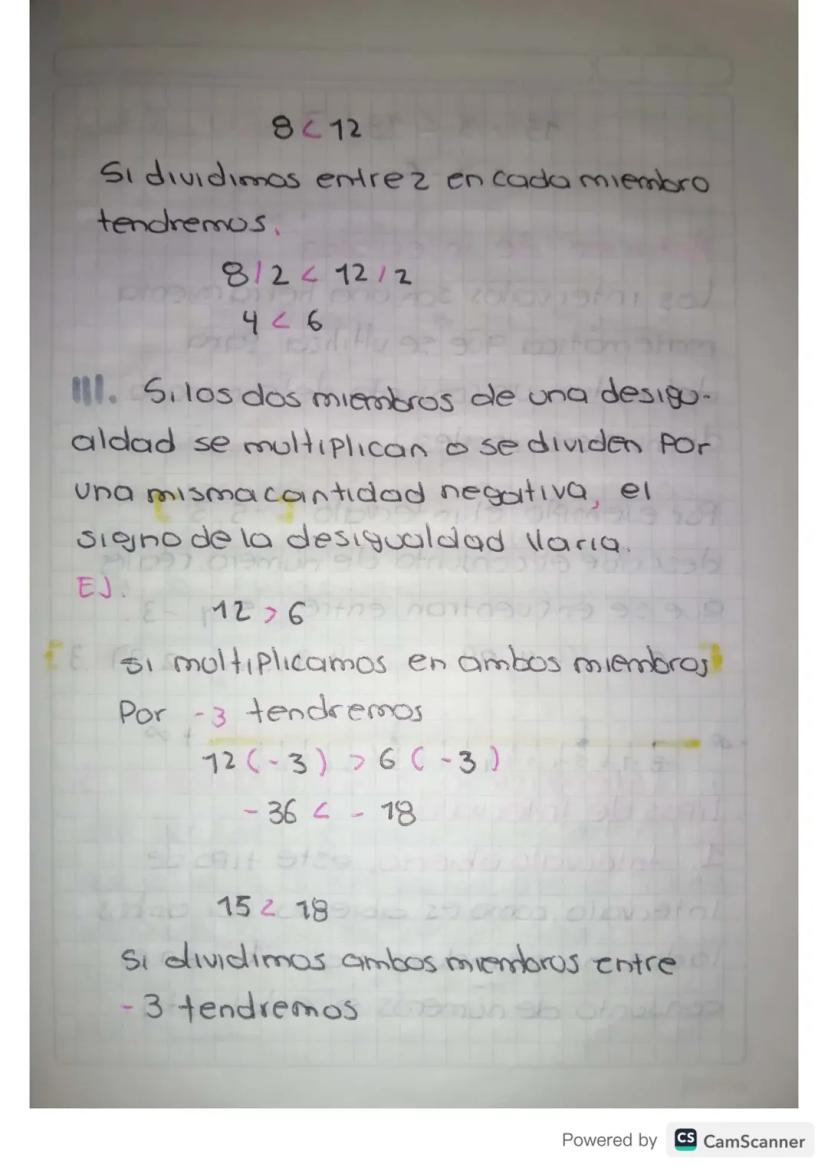 8 < 12
Si dividimos entre 2 en cada miembro
tendremos.
8/2 < 12/2
4 < 6
III. Si los dos miembros de una desigu-
aldad se multiplican o se dividen por
una misma cantidad negativa, el
signo de la desigualdad Varia.
EJ.
12 > 6
si multiplicamos en ambos miembros
Por -3 tendremos
12 (-3) > 6 (-3)
-36 < -18
15 < 18
Si dividimos ambos miembros entre
-3 tendremos
Powered by CS CamScanner